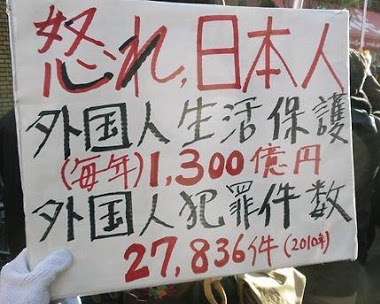 怒れ,日本人
外国人生活保護
(毎年)1,300億円
外国人犯罪件数
27,836件(2010年)